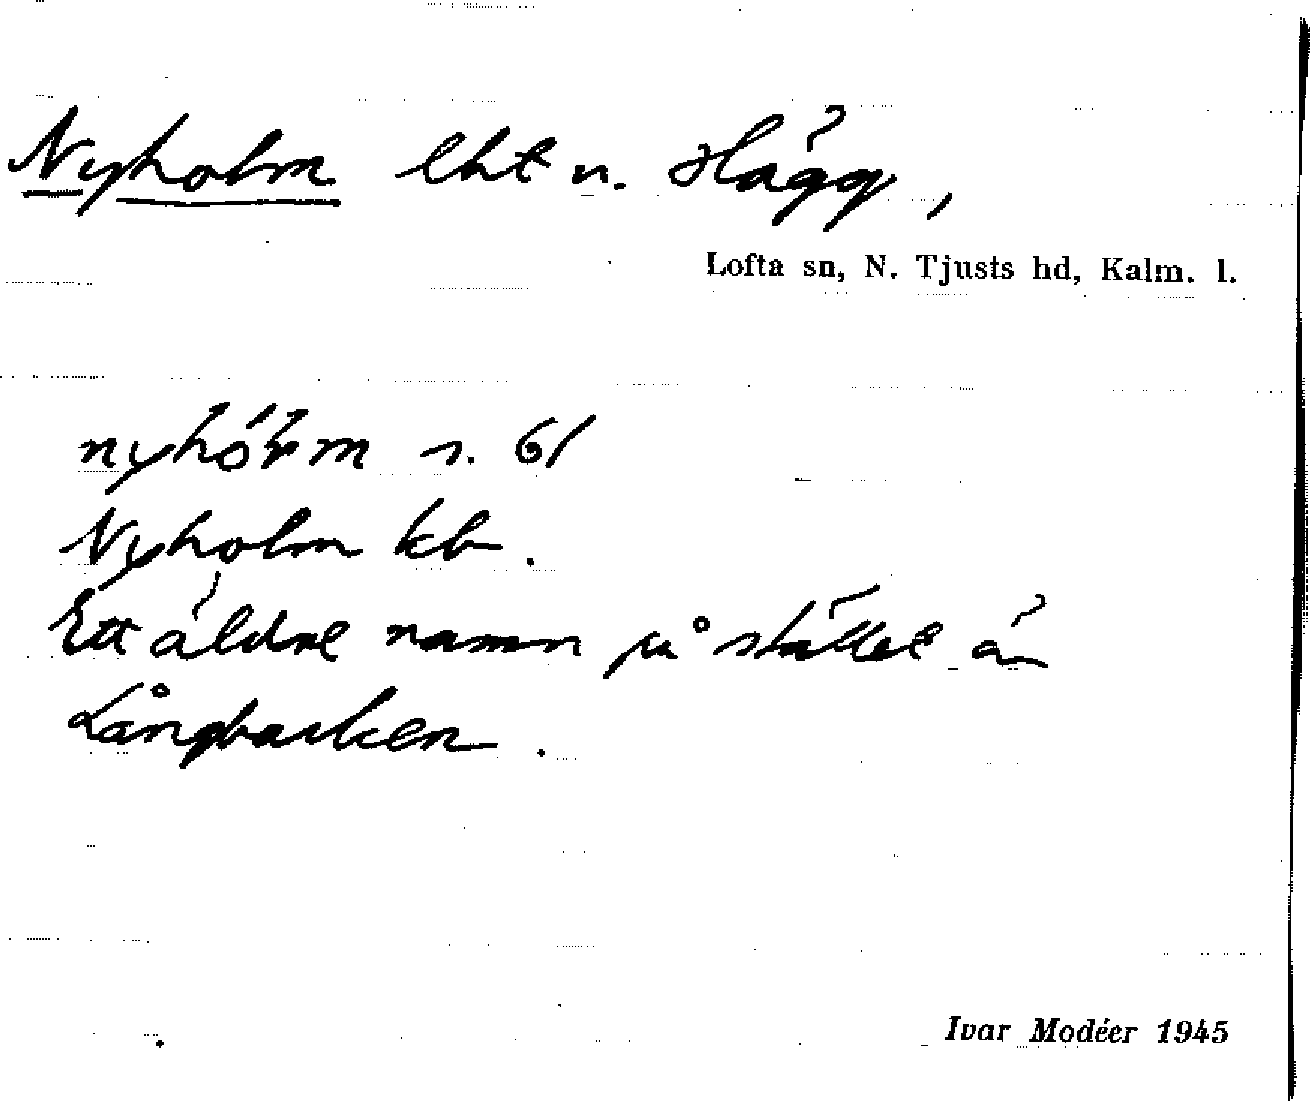 Nyholm lht u. Hägg,
Lofta sn, N. Tjusts hd, Kalm. l.
s. 61
Nyholm kb.
Ett äldre namn på stället är
Långbacken.
Ivar Modéer 1945